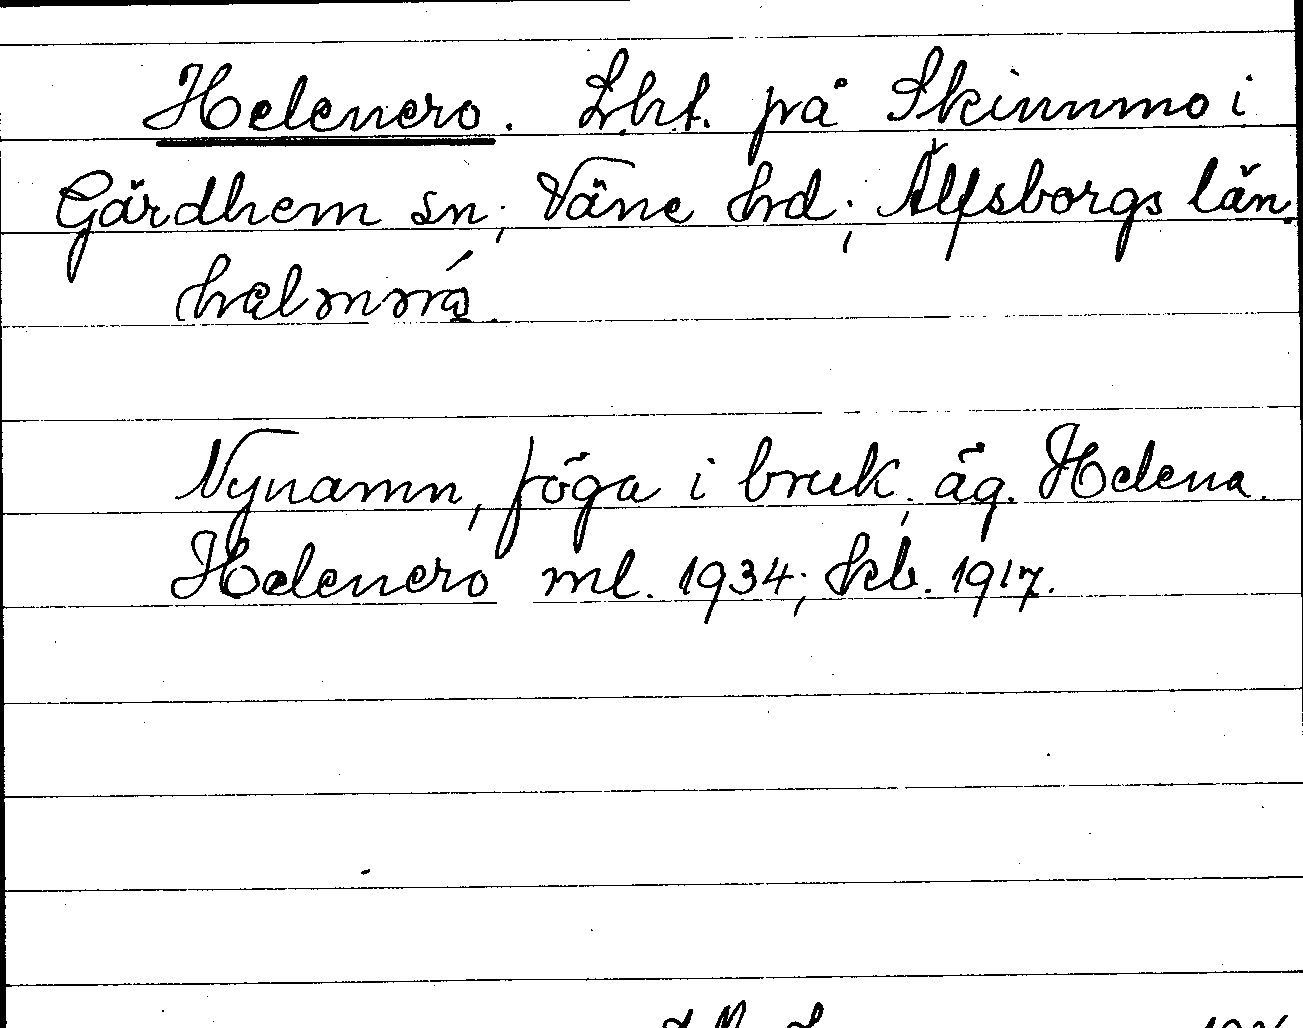 Helenero. Lht. på Skinnmo i
Gärdhem sn; Väne hd; Älfsborgs län.
Nynamn, föga i bruk; äg. Helena.
Helenero ml. 1934; kb. 1917.